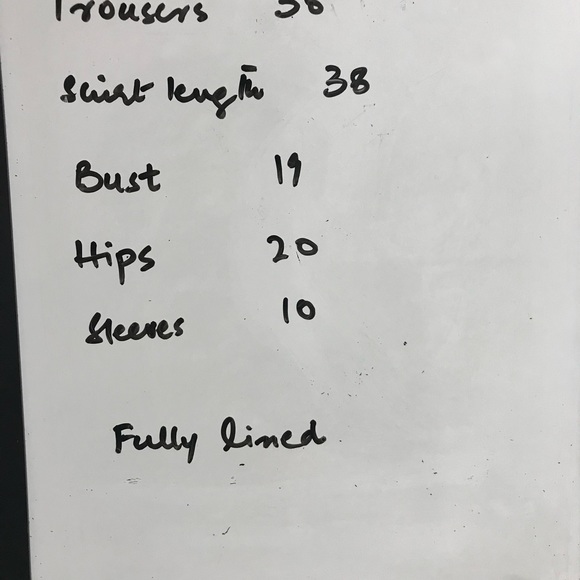 Trousers
Shirt length 38
Bust 19
Hips 20
Sleeves 10
Fully lined